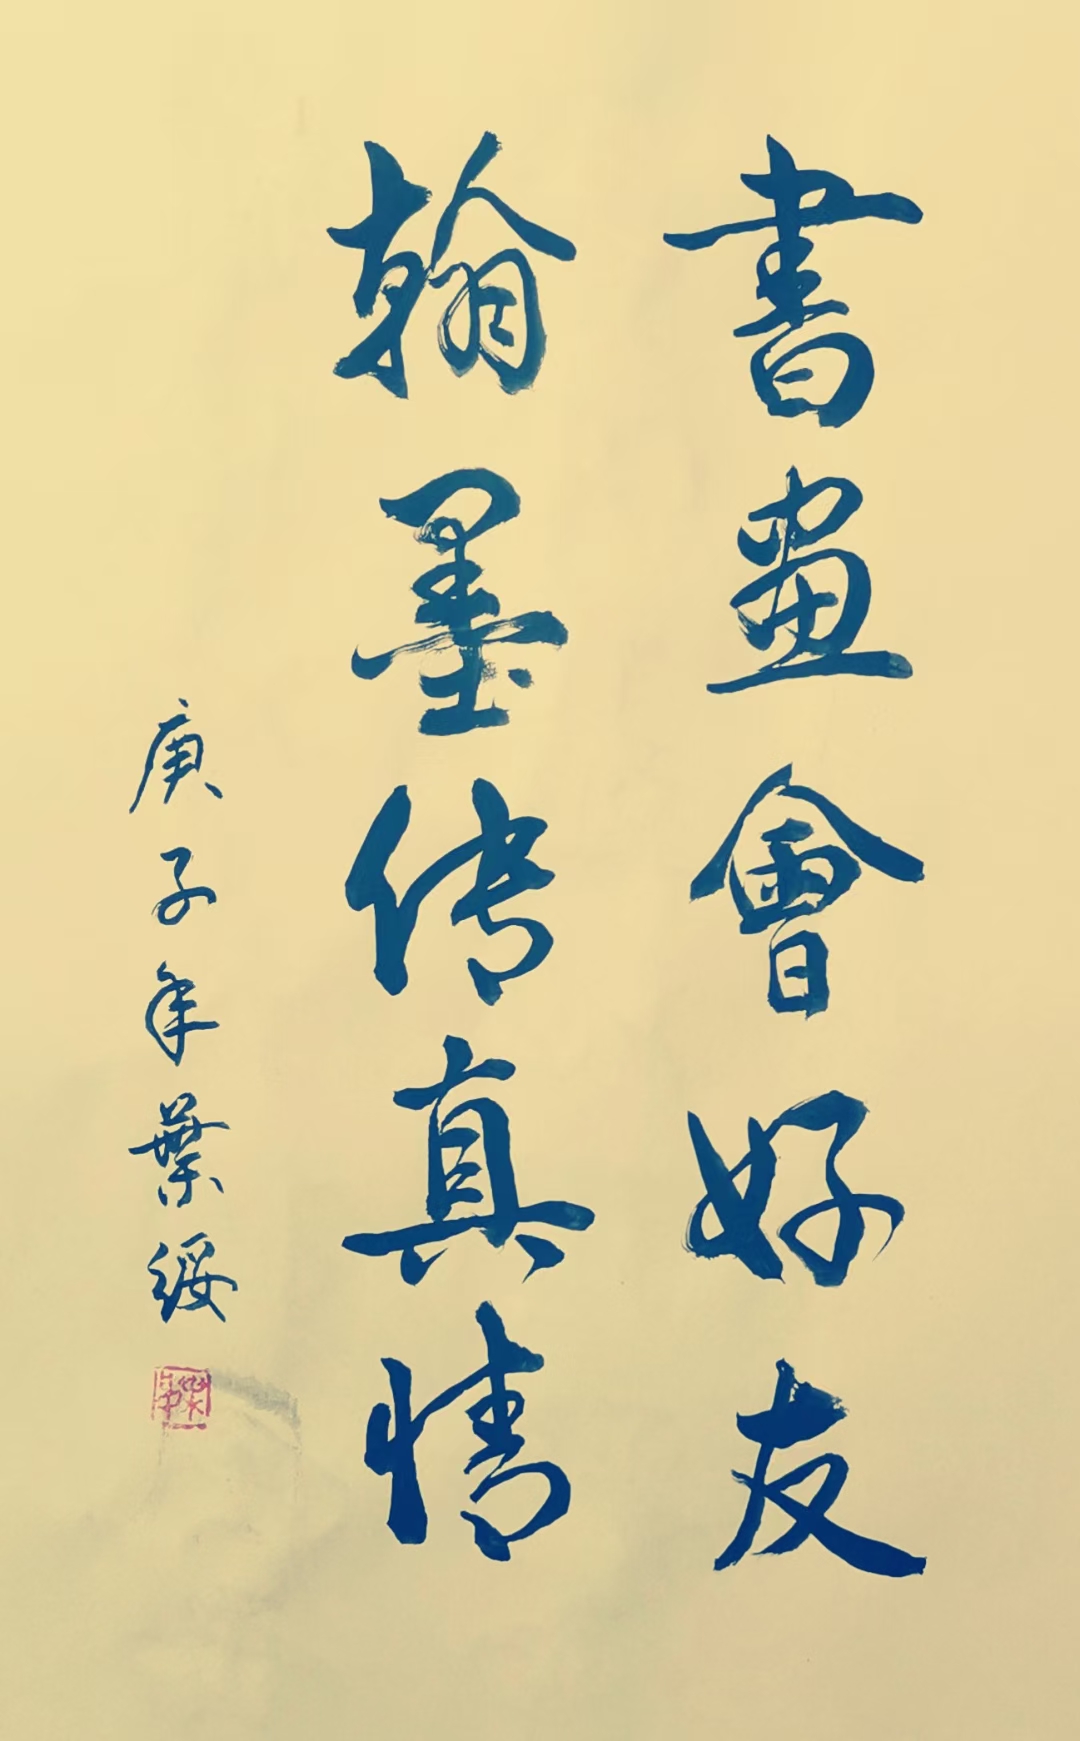 書畫會好友
翰墨传真情
庚子年葉綏